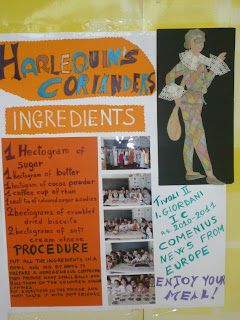 HARLEQUIN'S
CORIANDERS
INGREDIENTS
1 Hectogram of
sugar
1 Hectogram of butter
1 Hectogram of cocoa powder
1 coffee cup of rhum
1 small tin of coloured sugar candies
2 hectograms of crumbled
dried biscuits
2 hectograms of soft
cream cheese
PROCEDURE
PUT ALL THE INGREDIENTS IN A
BOWL AND MIX BY HAND TO
PREPARE A HOMOGENEOUS COMPOUND
THEN PREPARE MANY SMALL BALLS AND
ROLL THEM IN THE COLOURED SUGAR
CANDIES.
IN THE FRIDGE AND
THEN TASTE IT WITH YOUR FRIENDS.
TIVOLI II
A. GIORDANI
I C
as 2010-2011
COMENIUS
NEWS FROM
EUROPE
ENJOY YOUR
MEAL!